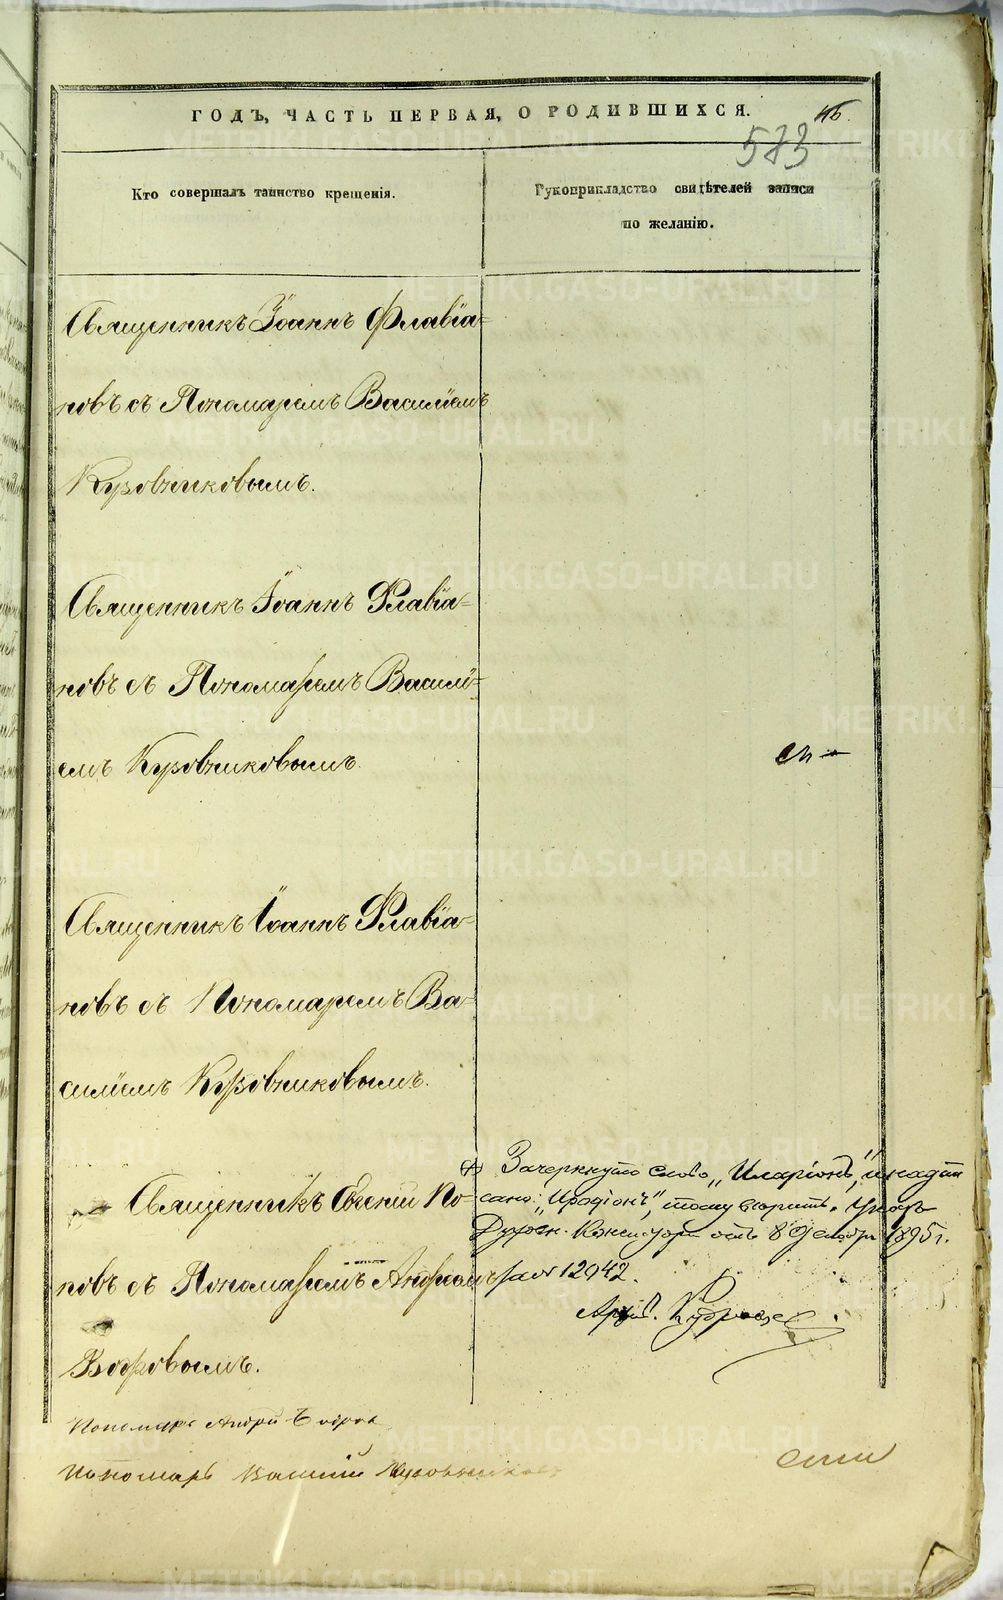 ГОДЪ, ЧАСТЬ ПЕРВАЯ, О РОДИВШИХСЯ.
573
Кто совершалъ таинство крещенія.
Рукоприкладство свидѣтелей записи
по желанію.
Священникъ Іоаннъ Флавіа-
новъ съ Пономаремъ Василіемъ
Куровчиковымъ.
Священникъ Іоаннъ Флавіа-
новъ съ Пономаремъ Василі-
емъ Куровчиковымъ
Священникъ Іоаннъ Флавіа-
новъ съ Пономаремъ Ва-
силіемъ Куровчиковымъ.
Священникъ Евгеній По-
новъ съ Пономаремъ Андреемъ
Бобровымъ.
Зачеркнуто слово „Иларіонъ", и надпи
сано: „Иродіонъ",
Духовн. Консистор. отъ 8 1895 г.
за № 12942.
Пономарь Андрей Бобров
Пономарь Василій Куровчиков
METRIKI.GASO-URAL.RU